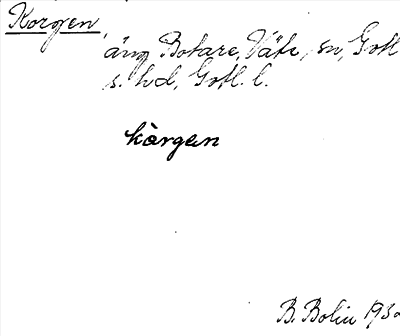 Korgen,
äng Botare, Väte, sn, Gotl
s. hd, Gotl. l.
kårgen
B. Bolin 193